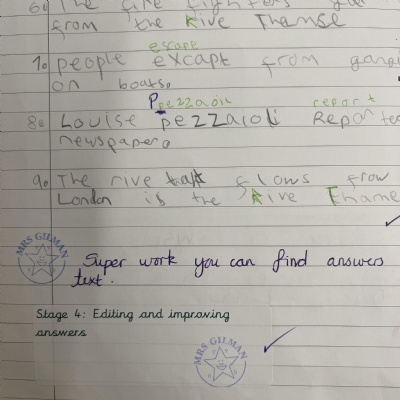 6. The fire fighters
from the Rive Thamse
escape
7. people excapt from
on boats.
Ppezzaoli report
8. Louise pezzaioli Repor
newspaper.
9. The rive that flows frow
London is the Rive Thame
MRS GILMAN
Super work you can find answers
text.
Stage 4: Editing and improving
answers
MRS GILMAN